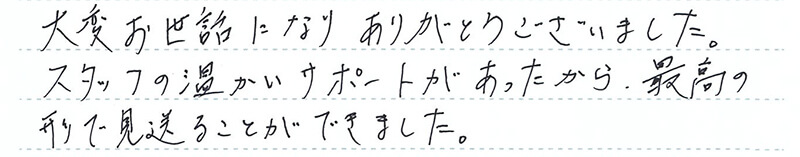 大変お世話になり ありがとうございました。
スタッフの温かいサポートがあったから、最高の
形で見送ることができました。